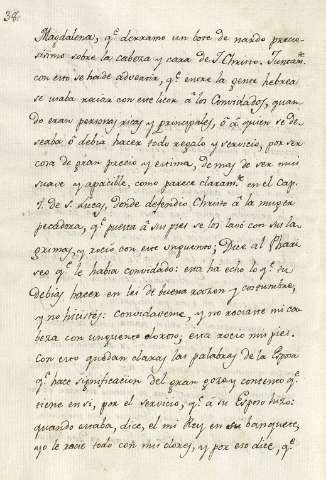 34.
Magdalena; q.e derramo un bote de nardo precio-
sissimo sobre la cabeza y cara de J. Christo. Juntam.te
con esto se ha de advertir, q.e entre la gente hebrea
se usaba rociar con este licor â los Convidados, quan-
do eran personas ricas y principales, ô â quien se de-
seaba ô debia hacer todo regalo y servicio, por ser
cosa de gran precio y estima, demas de ser mui
suave y apacible, como parece claram.te en el Cap.
7. de S. Lucas, donde defendió Christo â la muger
pecadora, q.e puesta â sus pies se los lavó con sus la-
grimas, y roció con este unguento; Dice al Phari-
seo q.e le habia convidado: esta ha echo lo q.e tu
debias hacer en lei de buena razon y costumbre,
y no hicistes: convidasteme, y no rociaste mi ca-
beza con unguento oloroso; esta roció mis pies.
Con esto quedan claras las palabras de la Esposa
q.e hace significacion del gran gozo y contento q.e
tiene en si, por el servicio, q.e â su Esposo hizo:
quando estaba, dice, el mi Rey en su banquete,
yo le rocie todo con mis olores, y por eso dice, q.e